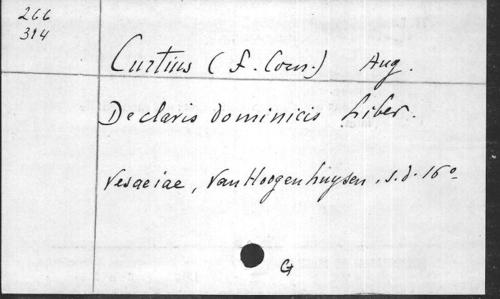 266
314
Curtius (f. Corn.) Aug.
De claris dominicis Liber.
Vesaeiae, Van Hoogenhuysen. s.d. 16º
G